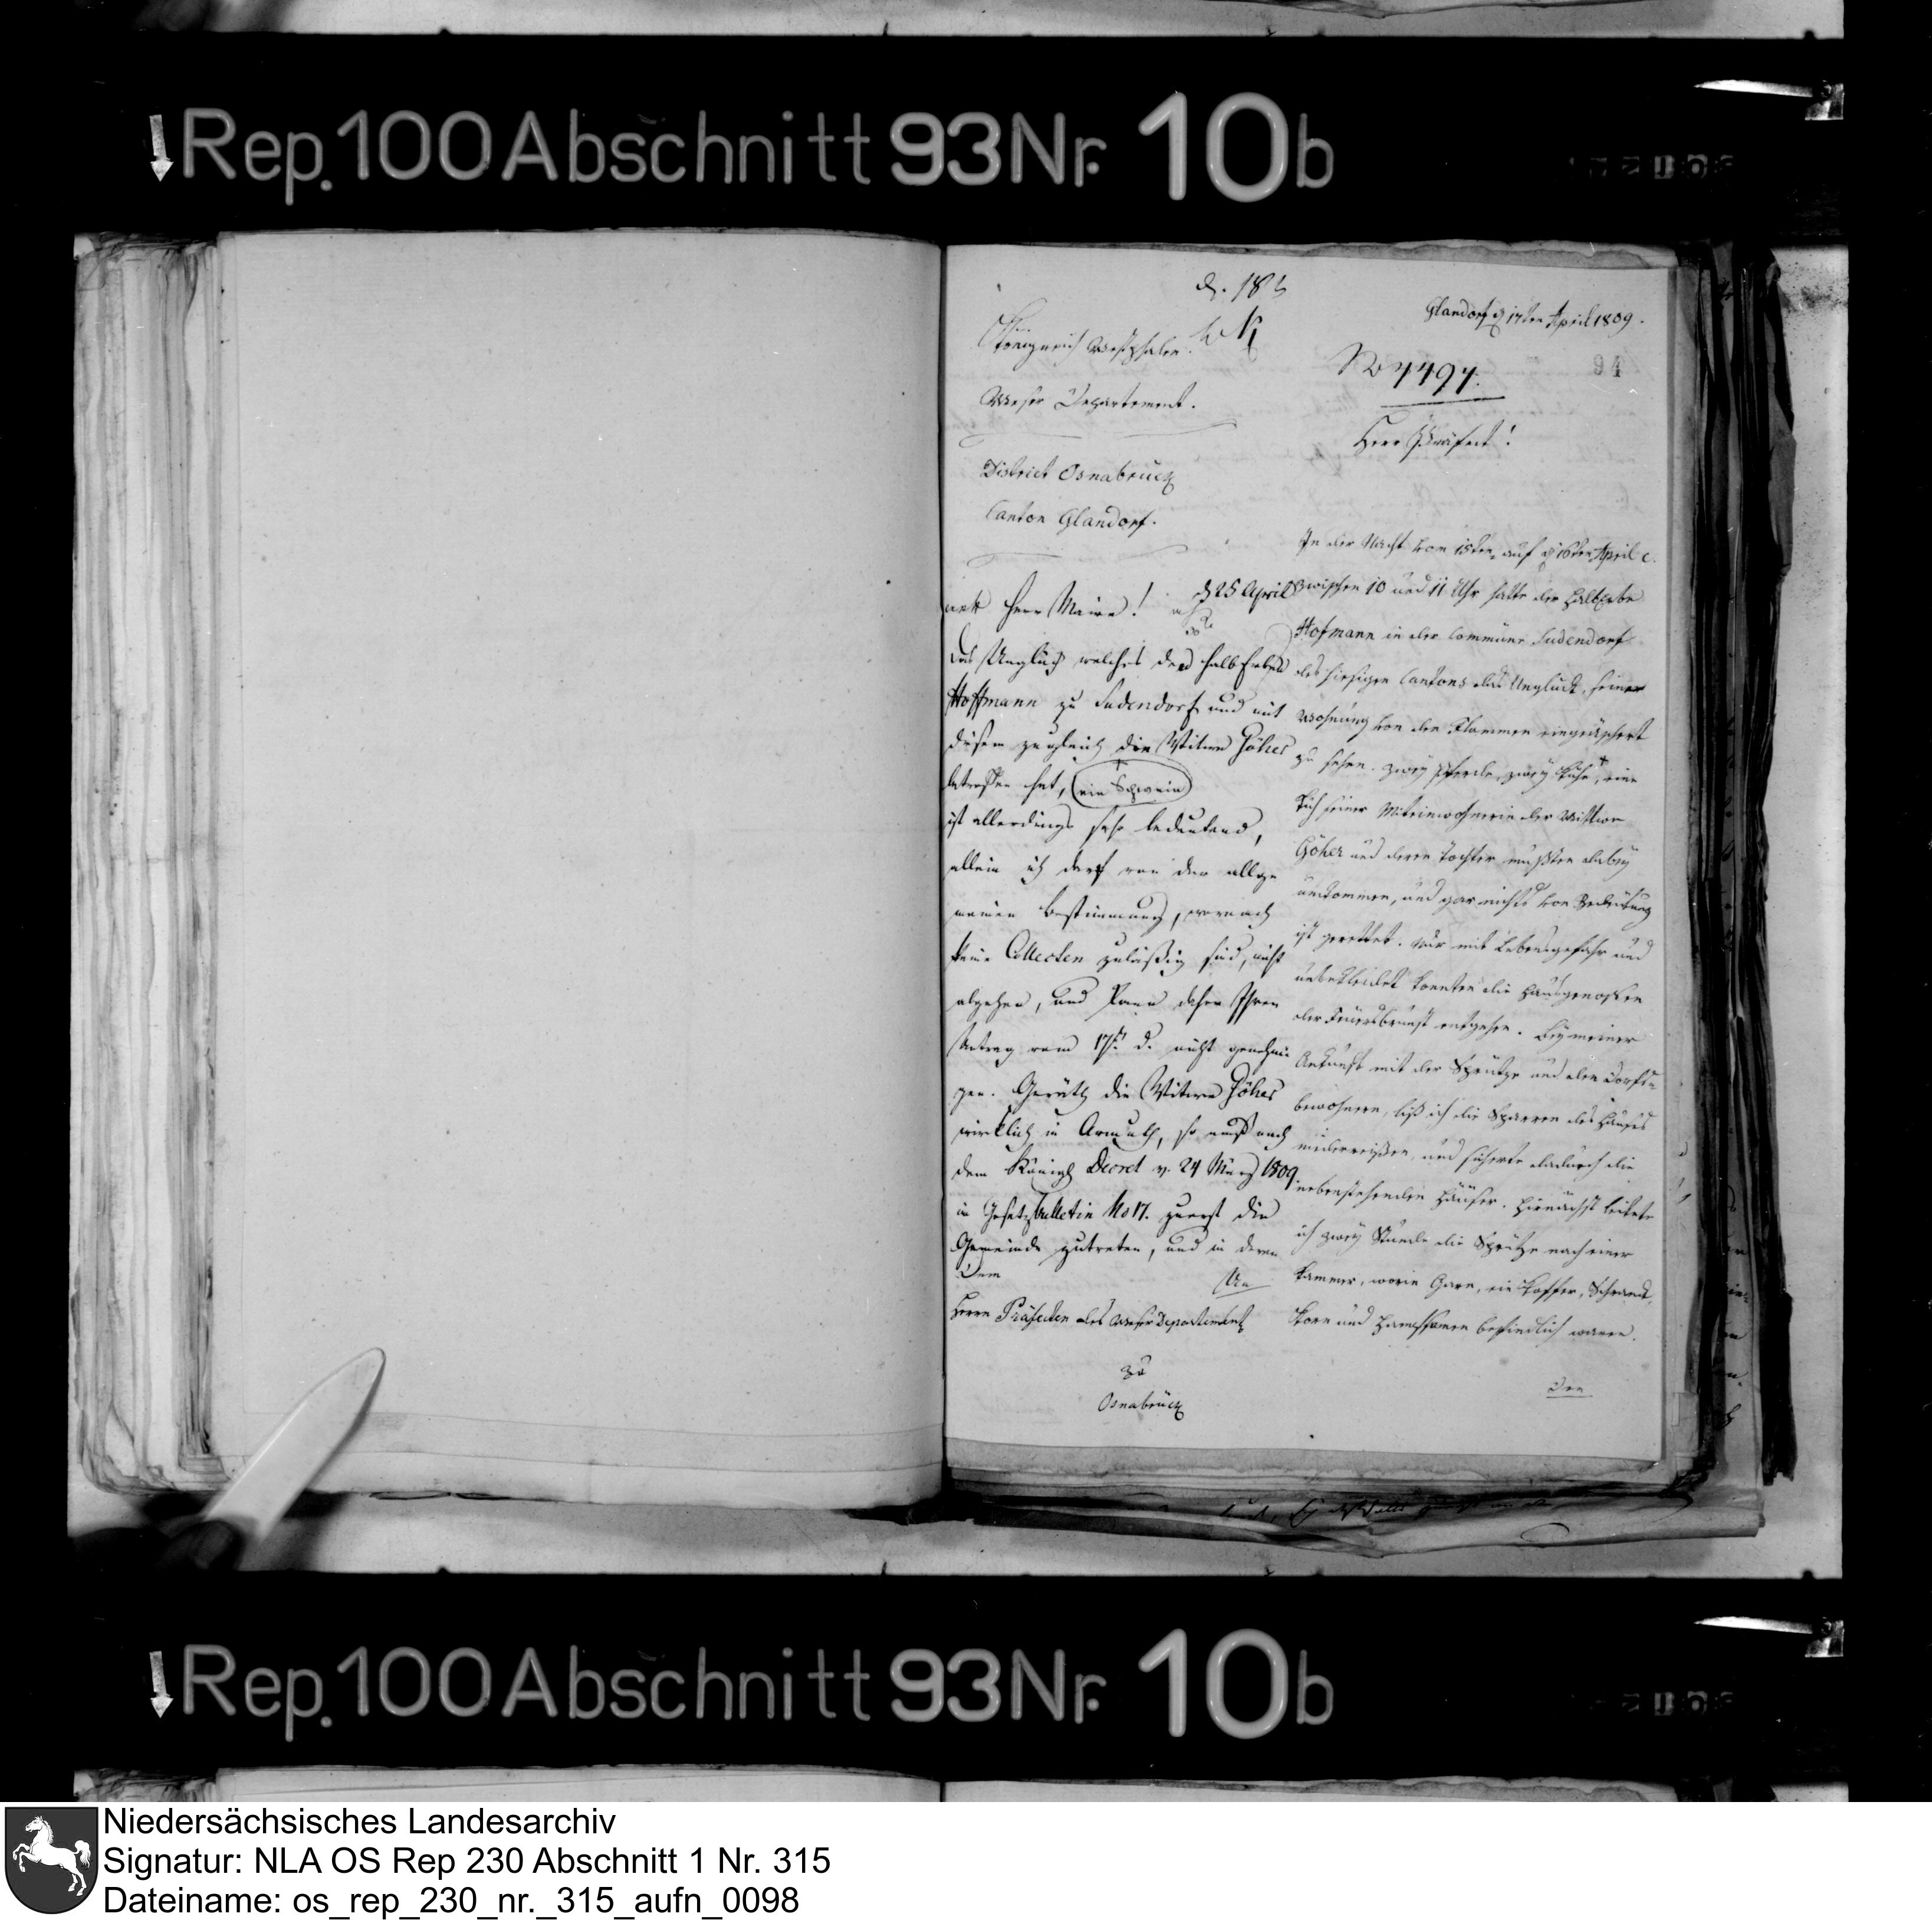 Rep. 100 Abschnitt 93 Nr. 10b
d. 18
Glandorf d 17ten April 1809.
Königreich Westphalen.
No 4494.
94
Weser Departement.
Herr Präfect!
District Osnabrück
Canton Glandorf.
In der Nacht vom 15ten auf d 16ten April c.
zwischen 10 und 11 Uhr hatte der Halberbe
Hofmann in der Commüne Sudendorf
des hiesigen Cantons das Unglück, seine
Wohnung von den Flammen eingeäschert
zu sehen. zwey Pferde, zwey Kühe, eine
Kuh seiner Miteinwohnerin der Wittwe
Göher und deren Tochter mußten dabey
umkommen, und gar nichts von Bedeutung
ist gerettet. Nur mit Lebensgefahr und
unbekleidet konnten die Hausgenossen
der Feuersbrunst entgehen. Bey meiner
Ankunft mit der Sprütze und den Dorfs-
bewohnern, ließ ich die Sparren des Hauses
niederreißen, und sicherte dadurch die
nebenstehenden Häuser. Hiernächst leitete
ich zwey Stunde die Sprütze nach einer
Kammer, worin Garn, ein Koffer, Schrank,
Korn und Hanfsamen befindlich waren.
Den
d 25 April
Herr Maire!
Das Unglück welches den Halberben
Hoffmann zu Sudendorf und mit
diesem zugleich die Witwe Göher
betroffen hat, (ein Schwein)
ist allerdings sehr bedeutend,
allein ich darf von der allge
meinen Bestimmung, wornach
keine Collecten zuläßig sind, nicht
abgehen, und kann daher Ihren
Antrag vom 17t. d. nicht genehmi
gen. Geräth die Witwe Göher
wirklich in Armuth, so muß nach
dem Königl Decret v. 24 März 1809
im Gesetzbulletin No 17. zuerst die
Gemeinde zutreten, und in deren
Dem
Herrn Präfecten des Weser Departements
zu
Osnabrück
Rep. 100 Abschnitt 93 Nr. 10b
Niedersächsisches Landesarchiv
Signatur: NLA OS Rep 230 Abschnitt 1 Nr. 315
Dateiname: os_rep_230_nr._315_aufn_0098